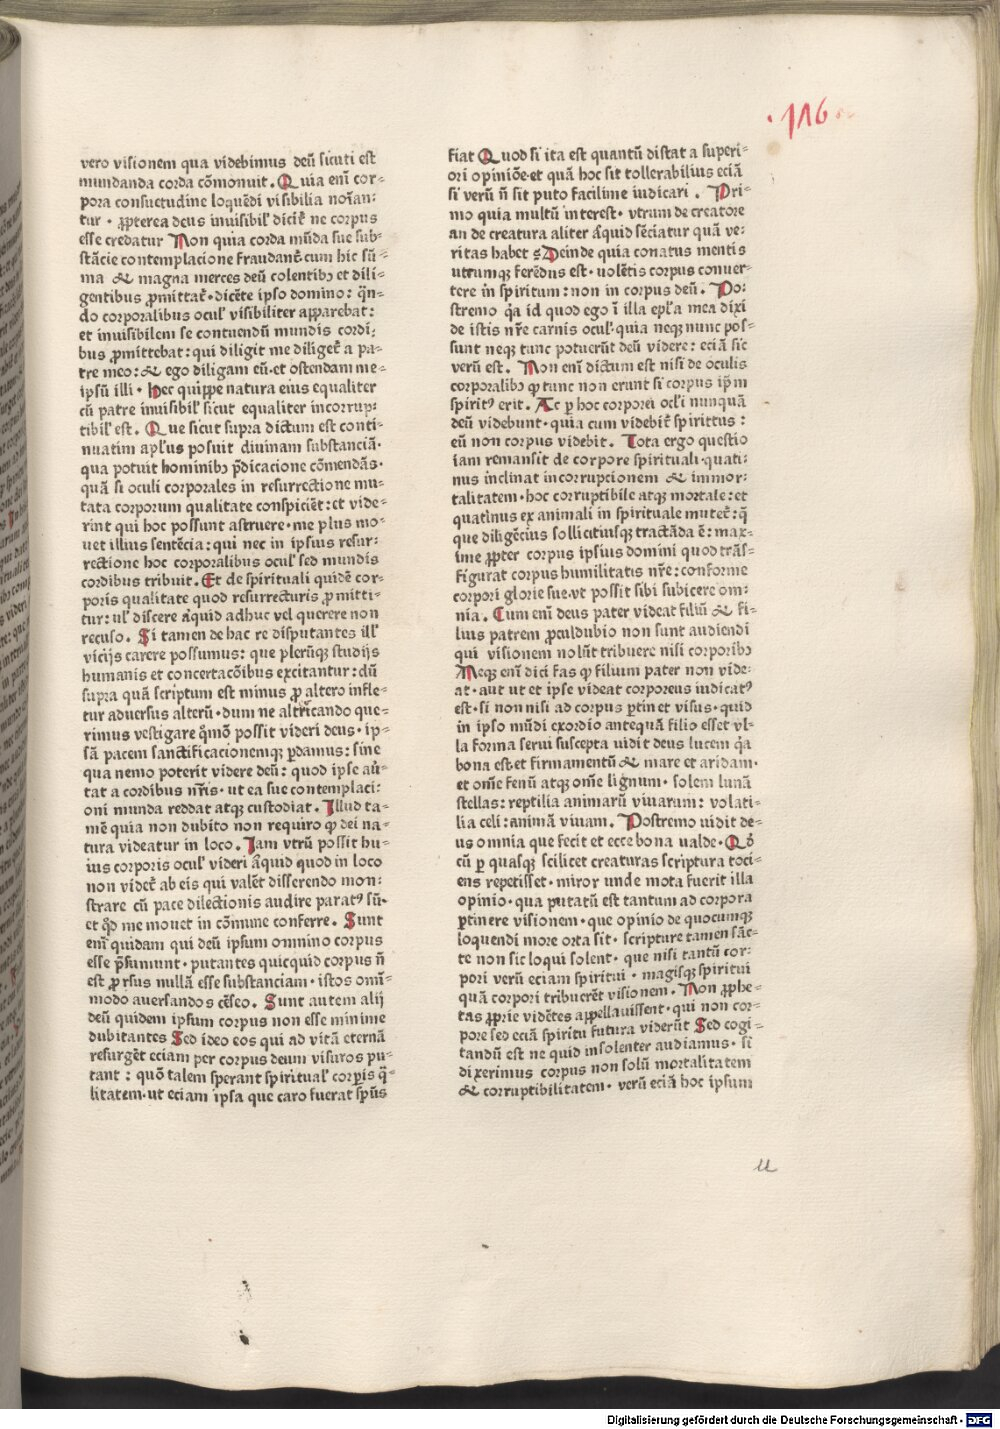 ·116·
vero visionem qua videbimus deū sicuti est
mundanda corda cōmonuit. Quia enī cor⸗
pora consuetudine loquēdi visibilia noīan:
tur · ꝓpterea deus inuisibil' dicit̄ ne corpus
esse credatur Non quia corda mūda sue sub⸗
stācie contemplacione fraudant̄ cum hic sū⸗
ma & magna merces deū colentibꝫ et dili⸗
gentibus ꝓmittat̄· dicēte ipso domino: qn̄⸗
do corporalibus ocul' visibiliter apparebat:
et inuisibilem se contuendū mundis cordi,
bus ꝓmittebat: qui diligit me diliget̄ a pa⸗
tre meo: & ego diligam eū· et ostendam me⸗
ipsū illi · Hec quippe natura eius equaliter
cū patre inuisibil' sicut equaliter incorrup:
tibil' est. Que sicut supra dictum est conti⸗
nuatim apl'us posuit diuinam substanciā·
qua potuit hominibꝫ p̄dicacione cōmendās·
quā si oculi corporales in resurrectione mu⸗
tata corporum qualitate conspiciēt: et vide⸗
rint qui hoc possunt astruere· me plus mo⸗
uet illius sentēcia: qui nec in ipsius resur⸗
rectione hoc corporalibus ocul' sed mundis
cordibus tribuit. Et de spirituali quidē cor⸗
poris qualitate quod resurrecturis ꝓmitti⸗
tur: ul' discere aliquid adhuc vel querere non
recuso. Si tamen de hac re disputantes ill'
vicijs carere possumus: que plerūqꝫ studijs
humanis et concertacōibus excitantur: dū
supra quā scriptum est minus ꝓ altero infle⸗
tur aduersus alterū· dum ne altricando que⸗
rimus vestigare qūmō possit videri deus· ip⸗
sā pacem sanctificacionemqꝫ ꝑdamus: sine
qua nemo poterit videre deū: quod ipse au⸗
tat a cordibus nr̄is· ut ea sue contemplaci:
oni munda reddat atqꝫ custodiat. Illud ta⸗
mē quia non dubito non requiro ꝙ dei na⸗
tura videatur in loco. Iam vtrū possit hu⸗
ius corporis ocul' videri aliquid quod in loco
non videt̄ ab eis qui valēt disserendo mon:
strare cū pace dilectionis audire paratꝰ sū·
et qd̄ me mouet in cōmune conferre. Sunt
enī quidam qui deū ipsum omnino corpus
esse p̄sumunt· putantes quicquid corpus n̄
est ꝓrsus nullā esse substanciam· istos omī⸗
modo auersandos cēseo. Sunt autem alij
deū quidem ipsum corpus non esse minime
dubitantes Sed ideo eos qui ad vitā eternā
resurgēt eciam per corpus deum visuros pu⸗
tant : quō talem sperant spiritual' corꝑis q̄⸗
litatem· ut eciam ipsa que caro fuerat spūs
fiat Quod si ita est quantū distat a superi⸗
ori opiniōe· et quā hoc sit tollerabilius eciā
si verū n̄ sit puto facilime iudicari . Pri⸗
mo quia multū interest· vtrum de creatore
an de creatura aliter aliquid sēciatur quā ve:
ritas habet Deinde quia conatus mentis
utrumqꝫ ferēdus est· uolētis corpus conuer⸗
tere in spiritum: non in corpus deū. Po:
stremo q̄a id quod ego ī illa epl'a mea dixi
de istis nr̄e carnis ocul'· quia neqꝫ nunc pos⸗
sunt neqꝫ tunc potuerūt deū videre: eciā sic
verū est. Non enī dictum est nisi de oculis
corporalibꝫ ꝙ tunc non erunt si corpus ip̄m
spiritꝰ erit. Ac ꝑ hoc corporei ocl'i nunquā
deū videbunt· quia cum videbit̄ spirittus :
eū non corpus videbit. Tota ergo questio
iam remansit de corpore spirituali· quati⸗
nus inclinat incorrupcionem & immor⸗
talitatem· hoc corruptibile atqꝫ mortale: et
quatinus ex animali in spirituale mutet̄: q̄
que diligēcius sollicitiusqꝫ tractāda ē: max⸗
ime ꝓpter corpus ipsius domini quod trās⸗
figurat corpus humilitatis nr̄e: conforme
corpori glorie sue· vt possit sibi subicere om⸗
nia. Cum enī deus pater videat filiū & fi⸗
lius patrem ꝓculdubio non sunt audiendi
qui visionem nolūt tribuere nisi corporibꝫ
Neqꝫ enī dici fas ꝙ filium pater non vide⸗
at· aut ut et ipse videat corporeus iudicatꝰ
est· si non nisi ad corpus ꝑtinet visus· quid
in ipso mūdi exordio antequā filio esset vl⸗
la forma serui suscepta uidit deus lucem q̄a
bona est· et firmamentū & mare et aridam·
et om̄e fenū atqꝫ om̄e lignum· solem lunā
stellas: reptilia animarū viuarum: volati⸗
lia celi: animā viuam. Postremo uidit de⸗
us omnia que fecit et ecce bona valde· Qd̄
cū ꝑ quasqꝫ scilicet creaturas scriptura toci⸗
ens repetisset· miror unde mota fuerit illa
opinio· qua putatū est tantum ad corpora
ꝑtinere visionem· que opinio de quocumqꝫ
loquendi more orta sit· scripture tamen sāc⸗
te non sic loqui solent· que nisi tantū cor⸗
pori verū eciam spiritui · magisqꝫ spiritui
quā corpori tribuerēt visionem. Non ꝓphe⸗
tas ꝓprie vidētes appellauissent· qui non cor⸗
pore sed eciā spiritu futura viderūt Sed cogi⸗
tandū est ne quid insolenter audiamus· si
dixerimus corpus non solū mortalitatem
& corruptibilitatem· verū eciā hoc ipsum
u
Digitalisierung gefördert durch die Deutsche Forschungsgemeinschaft · DFG